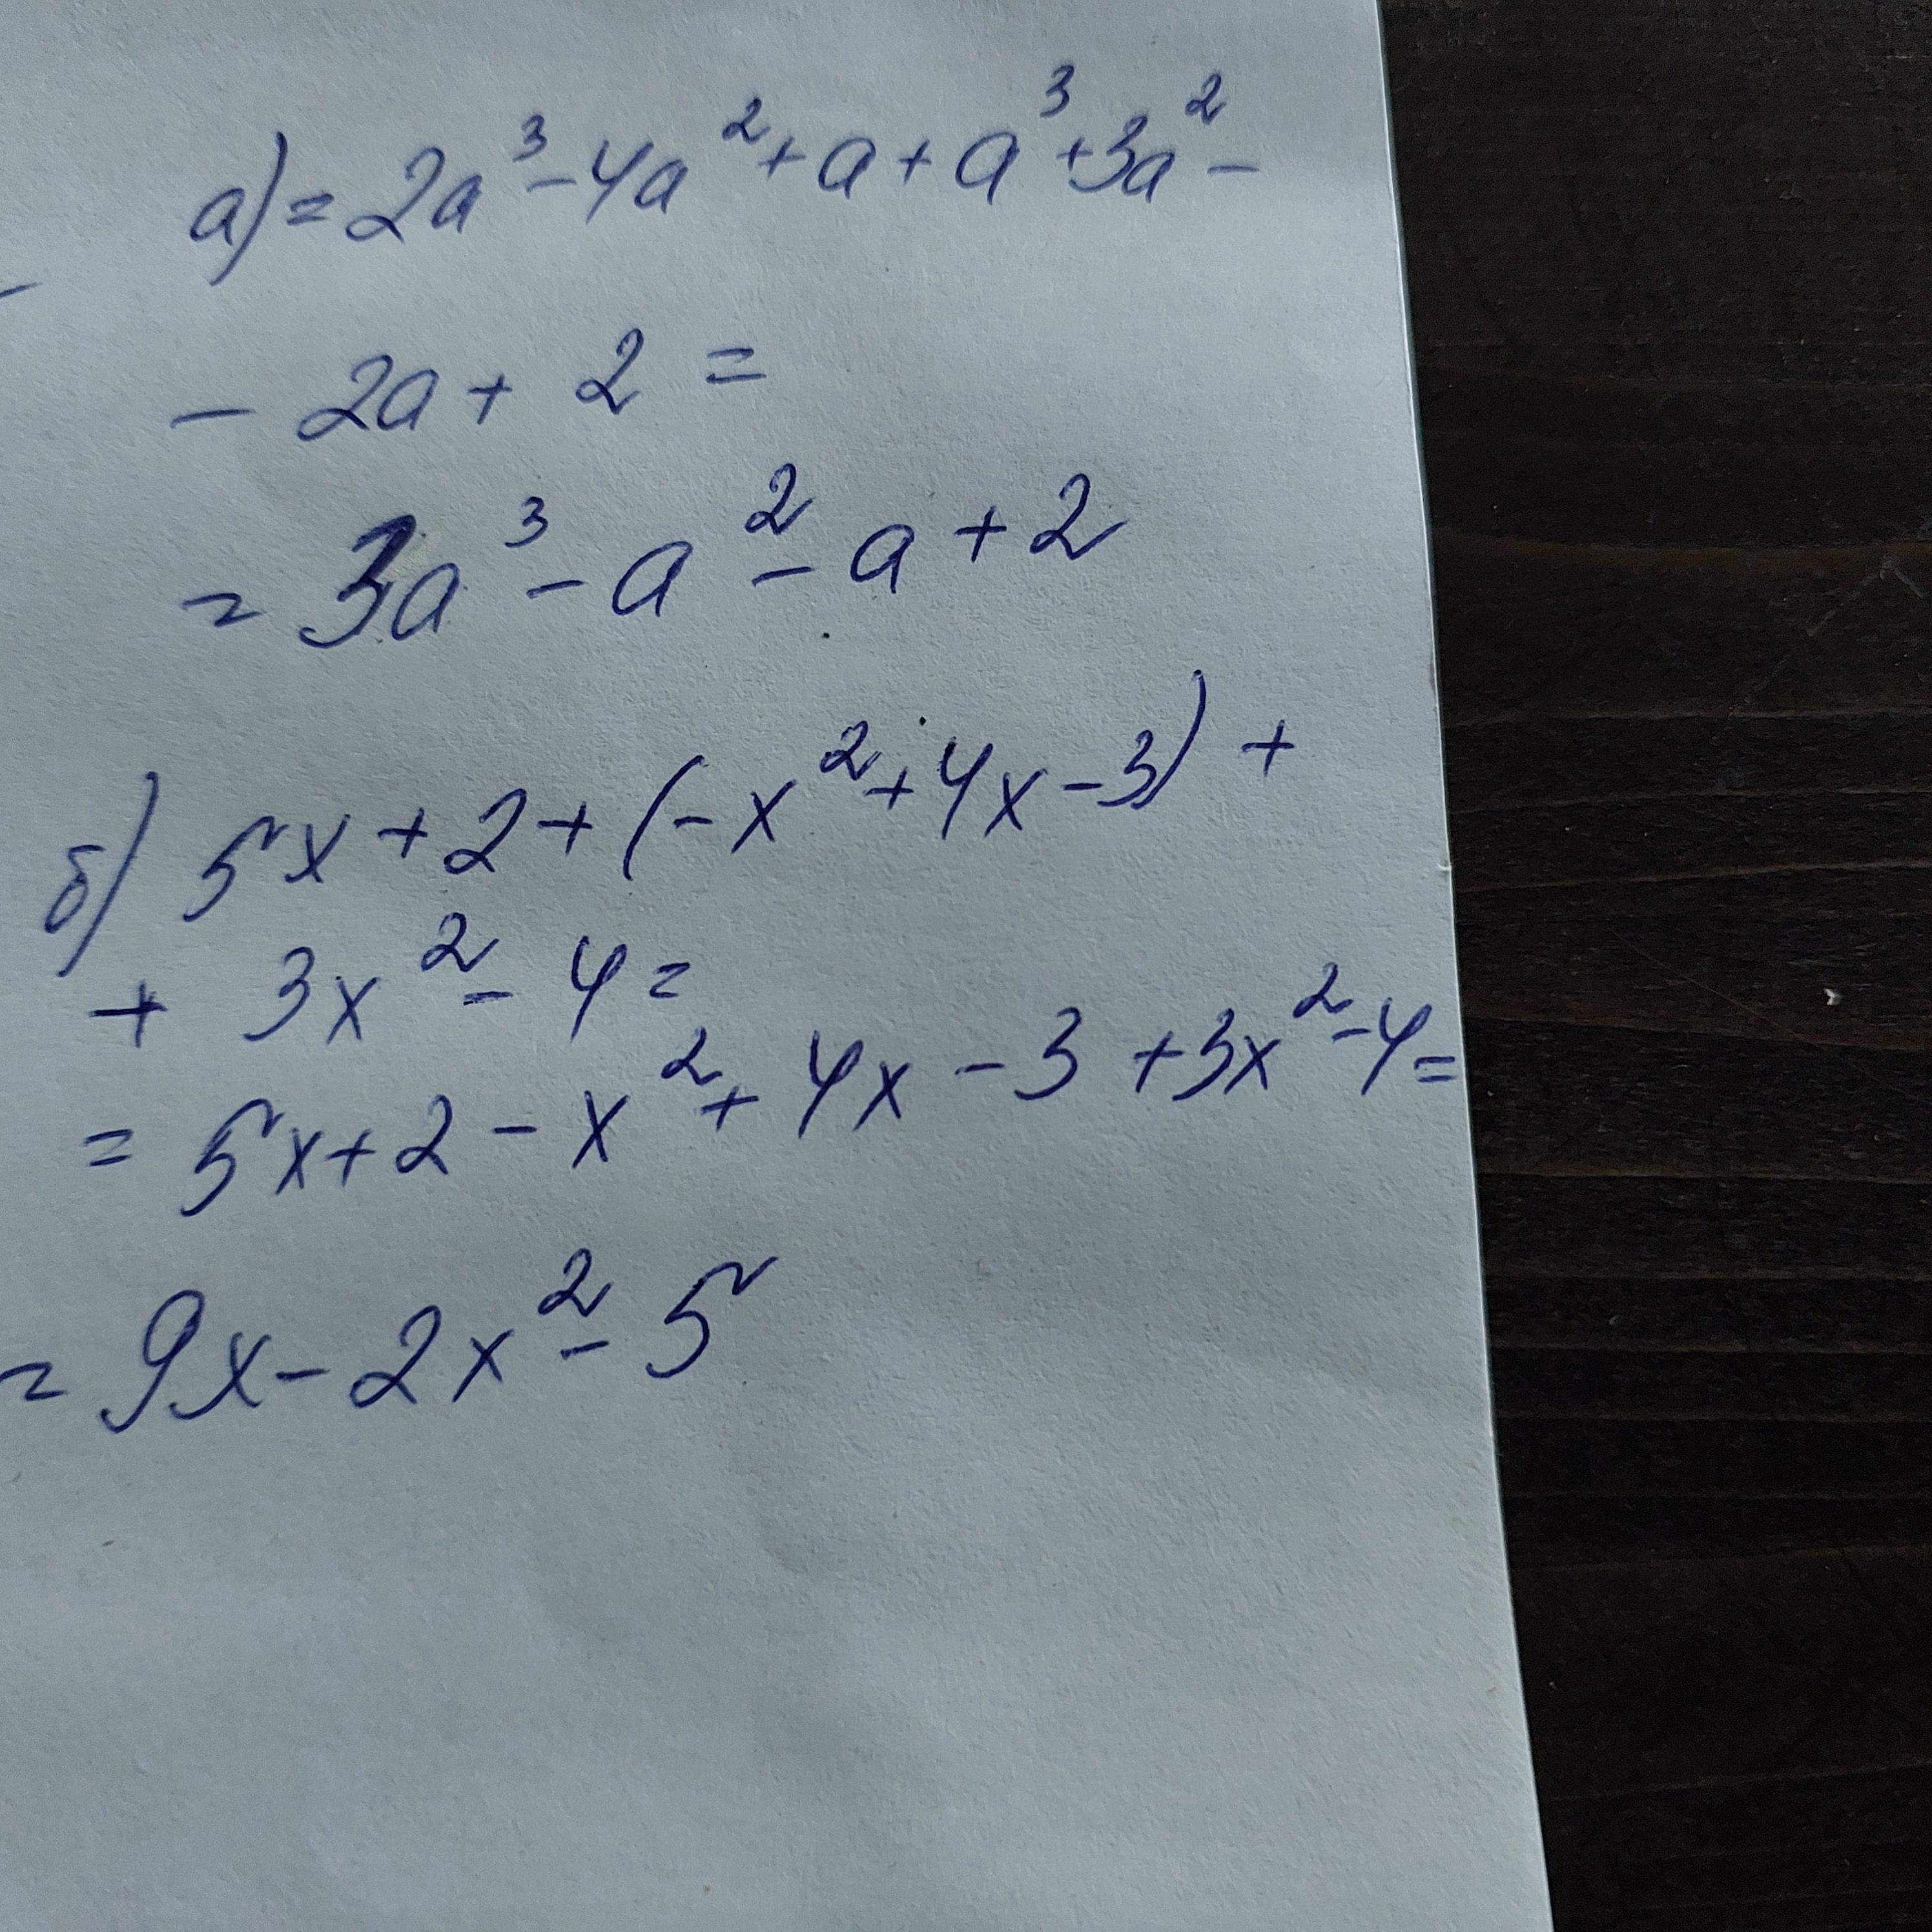 а) = 2a³ - 4a² + a + a³ + 3a² -
- 2a + 2 =
= 3a³ - a² - a + 2
б) 5x + 2 + (-x² + 4x - 3) +
+ 3x² - 4 =
= 5x + 2 - x² + 4x - 3 + 3x² - 4 =
= 9x - 2x² - 5